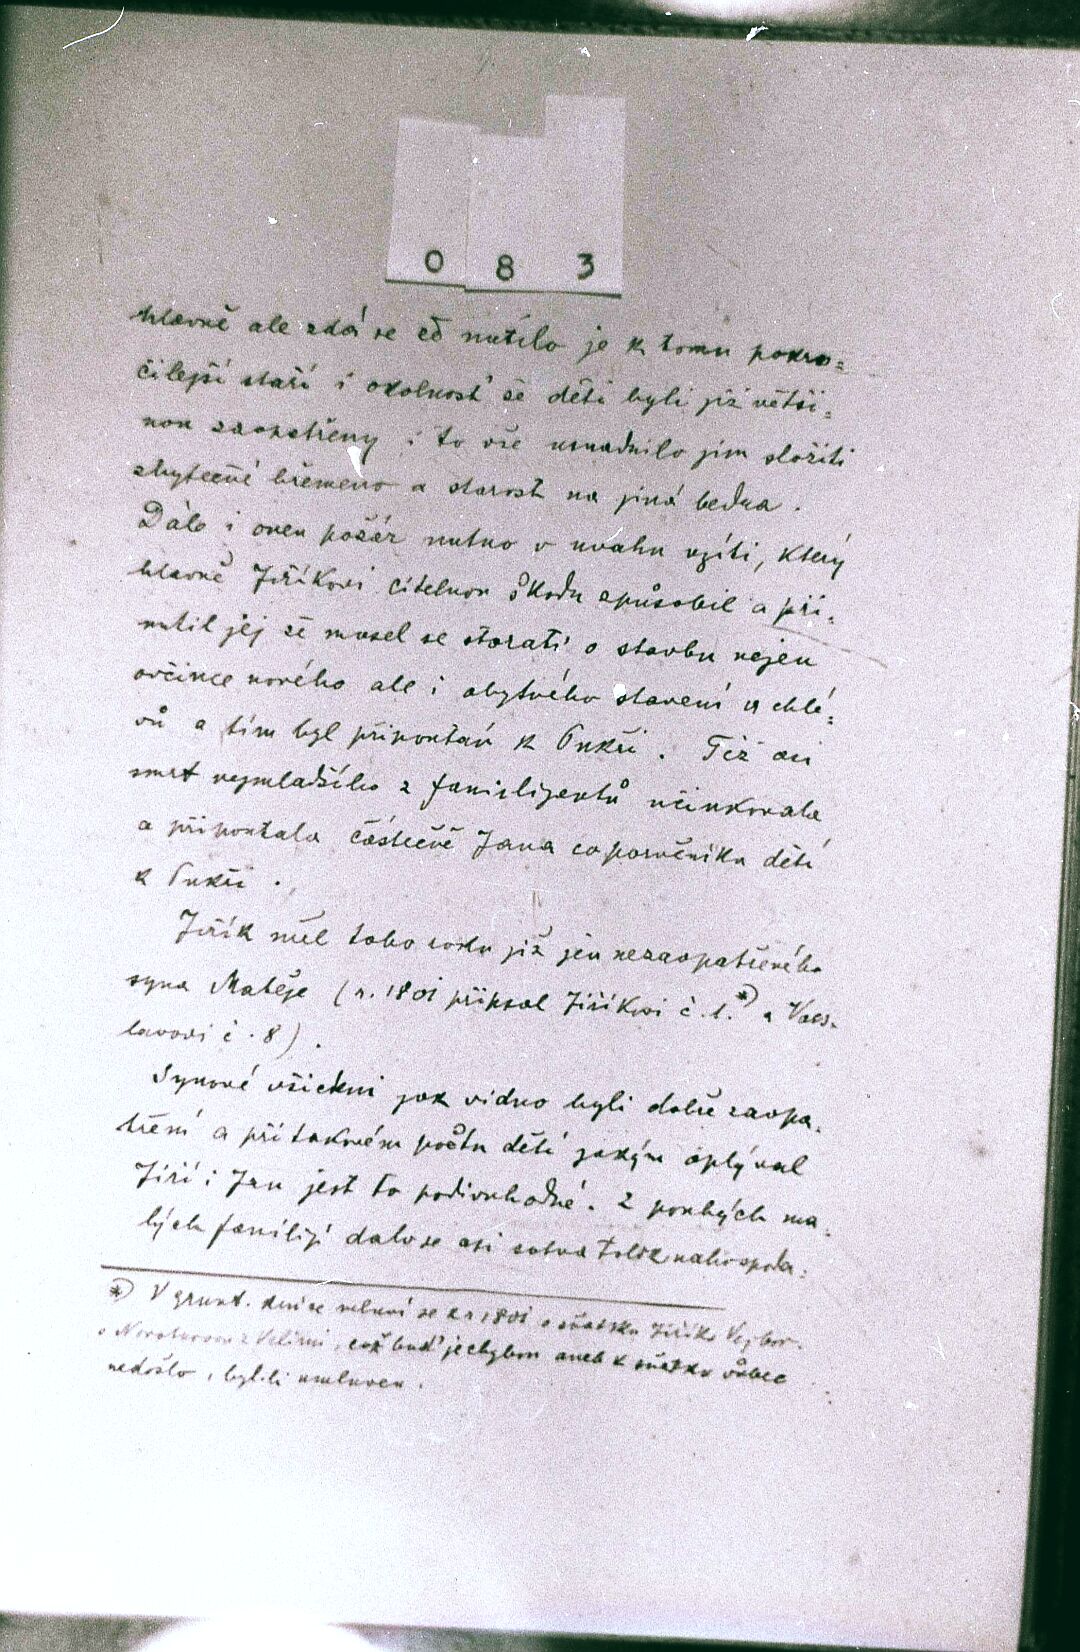 0 8 3
hlavně ale zdá se že nutilo je k tomu pokro=
čilejší staří i okolnost že děti byli již větši=
nou zaopatřeny i to vše usnadnilo jim složiti
zbytečné břemeno a starost na jiná bedra.
Dále i onen požár nutno v uvahu vzíti, který
hlavně Jiříkovi citelnou škodu způsobil a při=
nutil jej že musel se starati o stavbu nejen
ovčince nového ale i obytného stavení a chlé=
vů a tím byl připoután k Pukři. Též asi
smrt nejmladšího z familizentů účinkovala
a připoutala částečně Jana co poručníka dětí
k Pukři.
Jiřík měl toho roku již jen nezaopatřeného
syna Matěje (r. 1801 připsal Jiříkovi č. 1.*) a Vács-
lavovi č. 8).
Synové všickni jak vidno byli dobře zaopa=
třeni a při takovém počtu dětí jakým oplýval
Jiří i Jan jest to podivuhodné. Z pouhých ma=
lých familijí dalo se asi sotva tolik nahospoda=
*) V grunt. knize mluví se k r 1801 o sňatku Jiříka
, což buď je chybou aneb k sňatku vůbec
nedošlo, byl-li umluven.